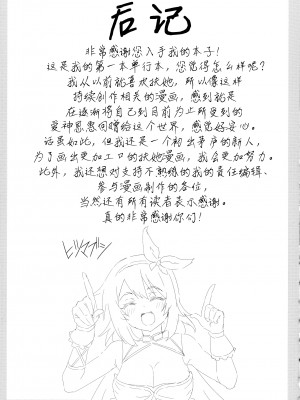 后记
非常感谢您入手我的本子!
这是我的第一本单行本,您觉得怎么样呢?
我从以前就喜欢扶她,所以像这样
持续创作相关的漫画,感到就是
在逐渐将自己到目前为止所受到的
爱神恩惠回赠给这个世界,感觉好安心。
话虽如此,但我还是一个初出茅庐的新人,
为了画出更加工口的扶她漫画,我会更加努力。
此外,我还想对支持不成熟的我的责任编辑、
参与漫画制作的各位,
当然还有所有读者表示感谢。
真的非常感谢你们!
ヒツマブシ